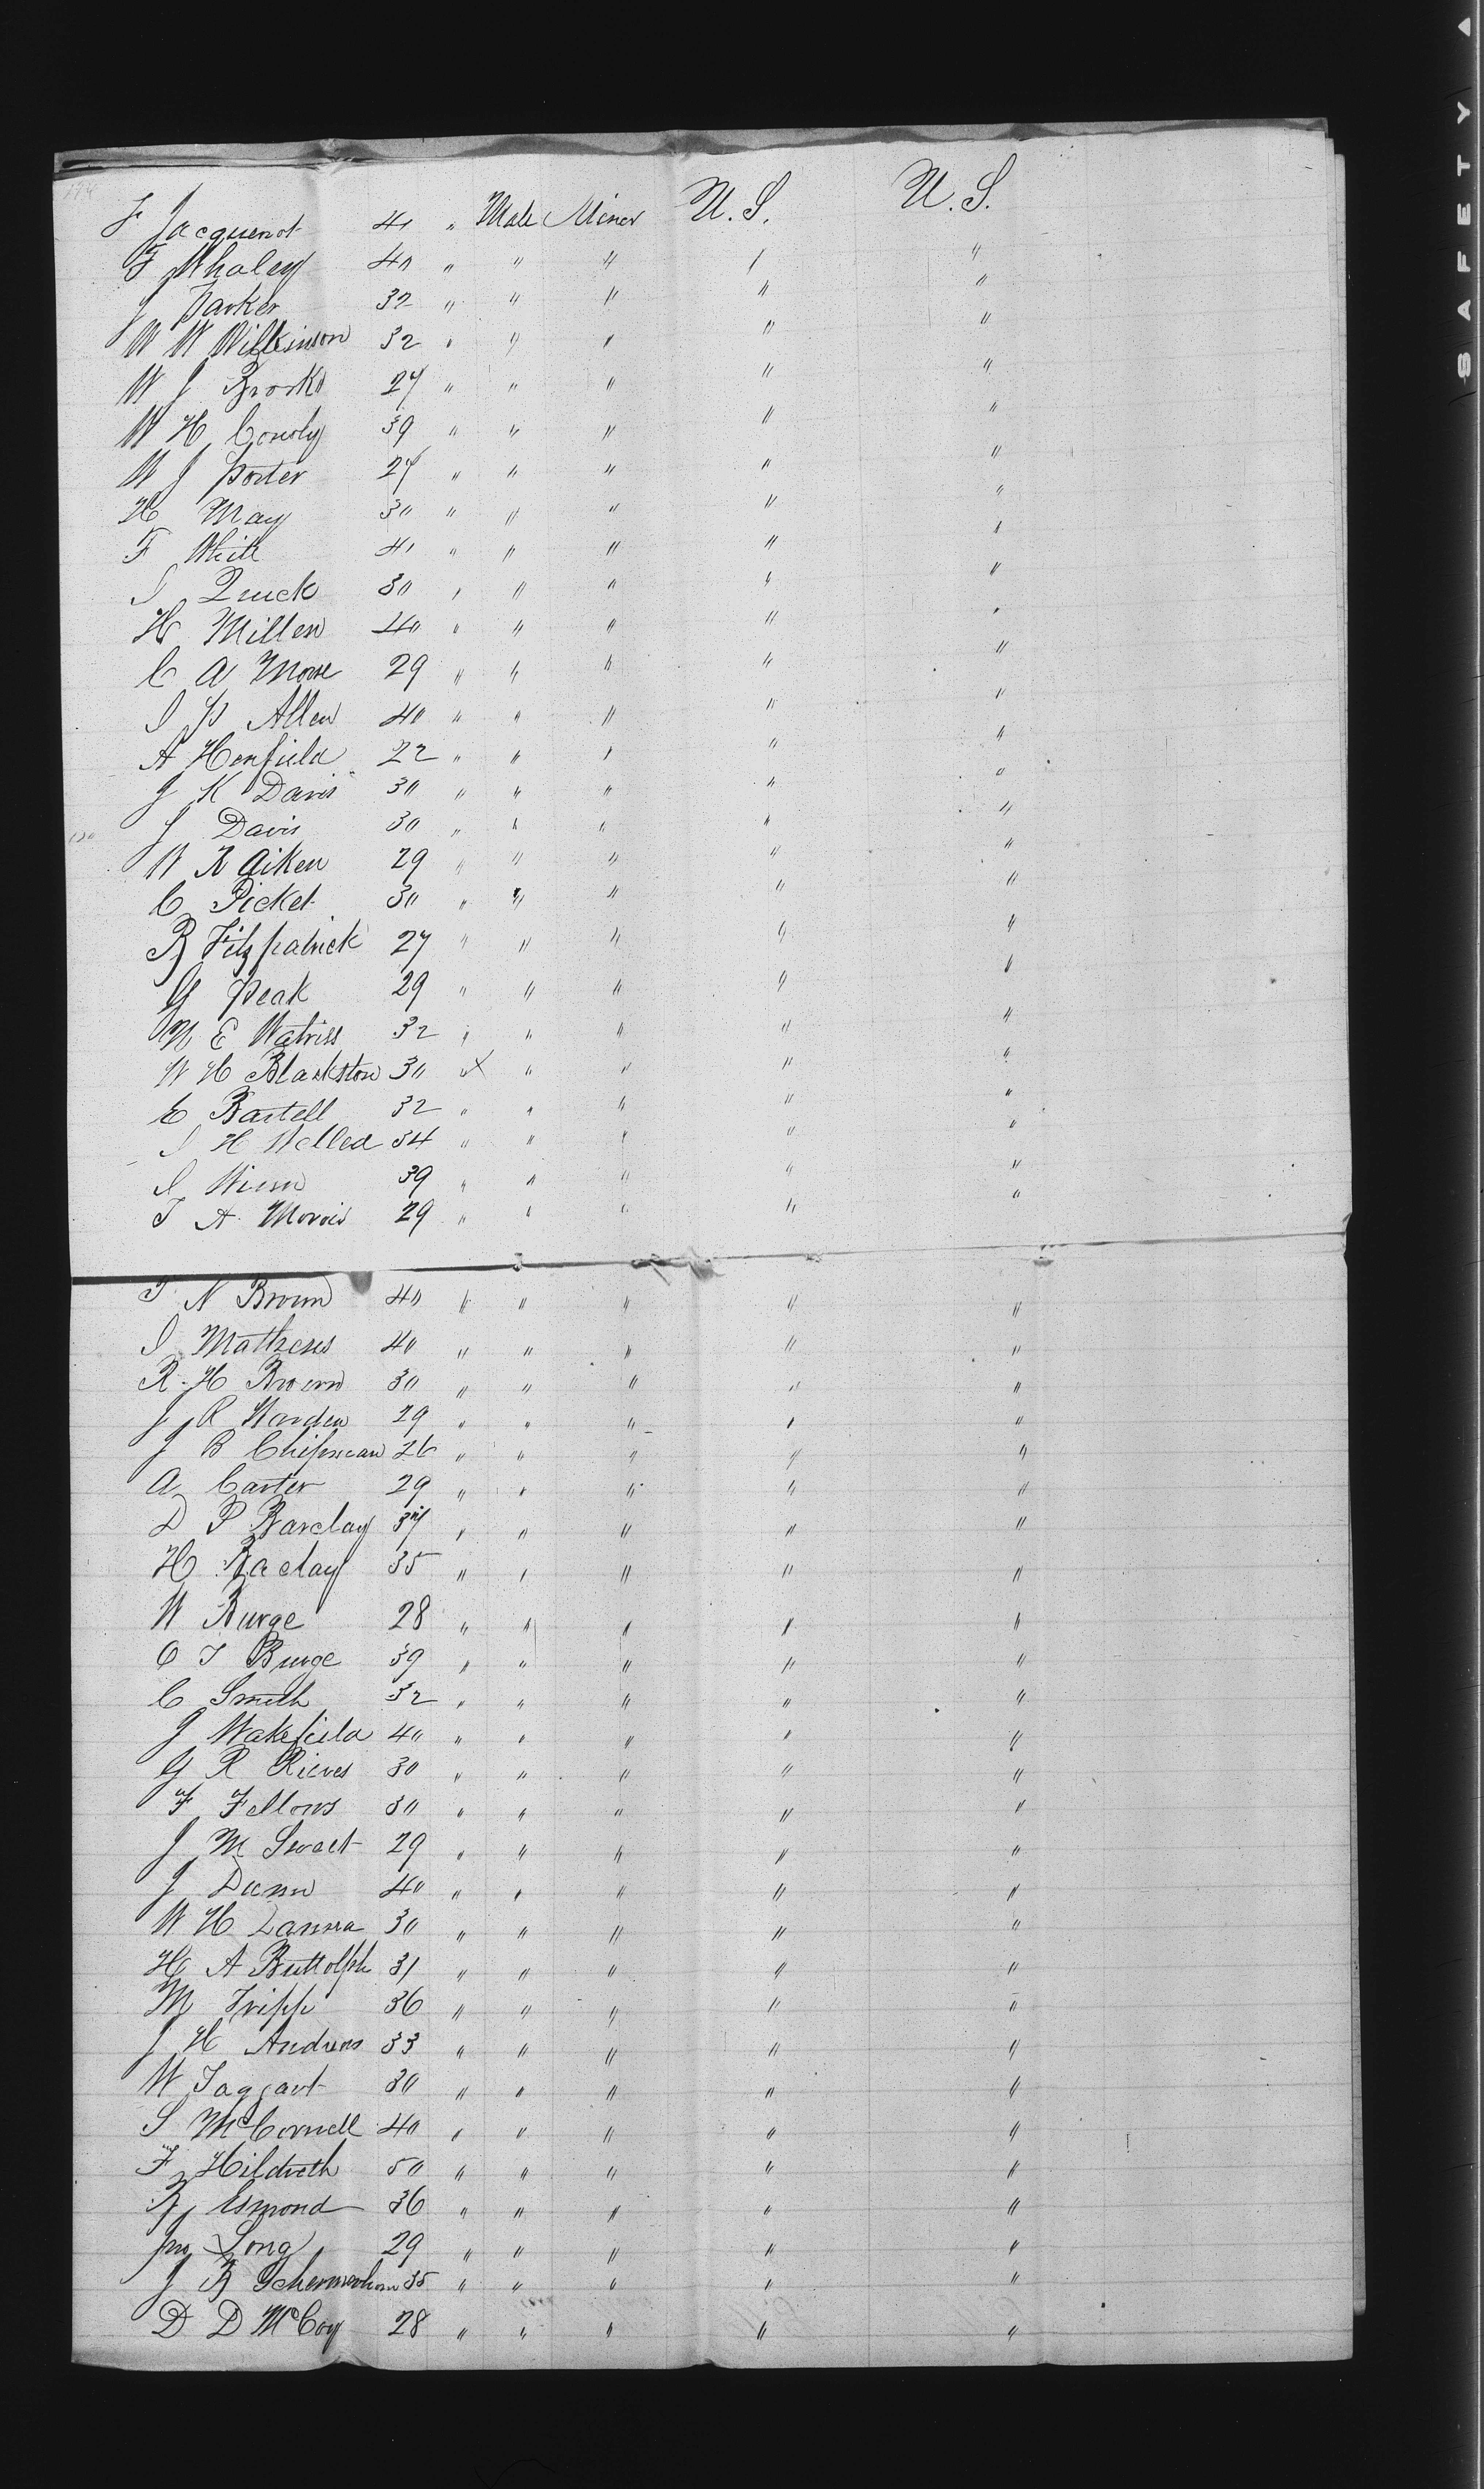 F Jacquenot 40 " Male Miner U.S. U.S.
F Whaley 40 " " " " "
J Parker 32 " " " " "
W W Wilkinson 32 " " " " "
W J Brooks 27 " " " " "
W H Conoly 39 " " " " "
W J Porter 27 " " " " "
H May 30 " " " " "
F White 40 " " " " "
S Quick 30 " " " " "
H Millen 40 " " " " "
C A Morse 29 " " " " "
S P Allen 40 " " " " "
A Henfield 22 " " " " "
J K Davis 30 " " " " "
J Davis 30 " " " " "
W R Aiken 29 " " " " "
C Picket 30 " " " " "
R Fitzpatrick 27 " " " " "
G Peak 29 " " " " "
N E Watriss 32 " " " " "
W H Blackston 30 " " " " "
E Bartell 32 " " " " "
S H Welled 34 " " " " "
S 39 " " " " "
T A Morris 29 " " " " "
T N Brown 40 " " " " "
S Mathews 40 " " " " "
R H Brown 30 " " " " "
J R Warden 29 " " " " "
J B Chipman 26 " " " " "
A Carter 29 " " " " "
D P Barclay 37 " " " " "
H Baclay 35 " " " " "
W Burge 28 " " " " "
O T Burge 39 " " " " "
C Smith 32 " " " " "
J Wakefield 40 " " " " "
G R Rieves 30 " " " " "
F Fellows 30 " " " " "
J M Sweet 29 " " " " "
J Dunn 40 " " " " "
W H Lanna 30 " " " " "
H A Buttolph 31 " " " " "
M Tripp 36 " " " " "
J H Andrews 33 " " " " "
W Taggart 30 " " " " "
S McConnell 40 " " " " "
F Hildreth 50 " " " " "
R Esmond 36 " " " " "
Jno Long 29 " " " " "
J B Schermerhorn 35 " " " " "
D D McCoy 28 " " " " "
SAFETY